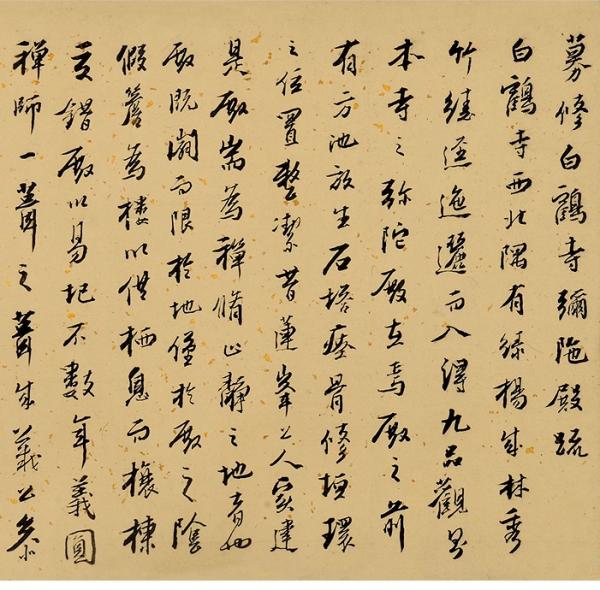 募修白鶴寺彌陁殿疏
白鶴寺西北隅有綠楊成林秀
竹繞逕迤邐而入得九品觀即
本寺之弥陀殿在焉殿之前
有方池放生石塔瘞骨修垣環
之位置整潔昔蓮峰上人寔建
是殿耑為禪脩止靜之地音也
殿既闊而限於地僅於殿之陰
假簷為樓以供栖息而榱棟
交錯殿以易圮不數年義圓
禪師一葺之葺成義公示